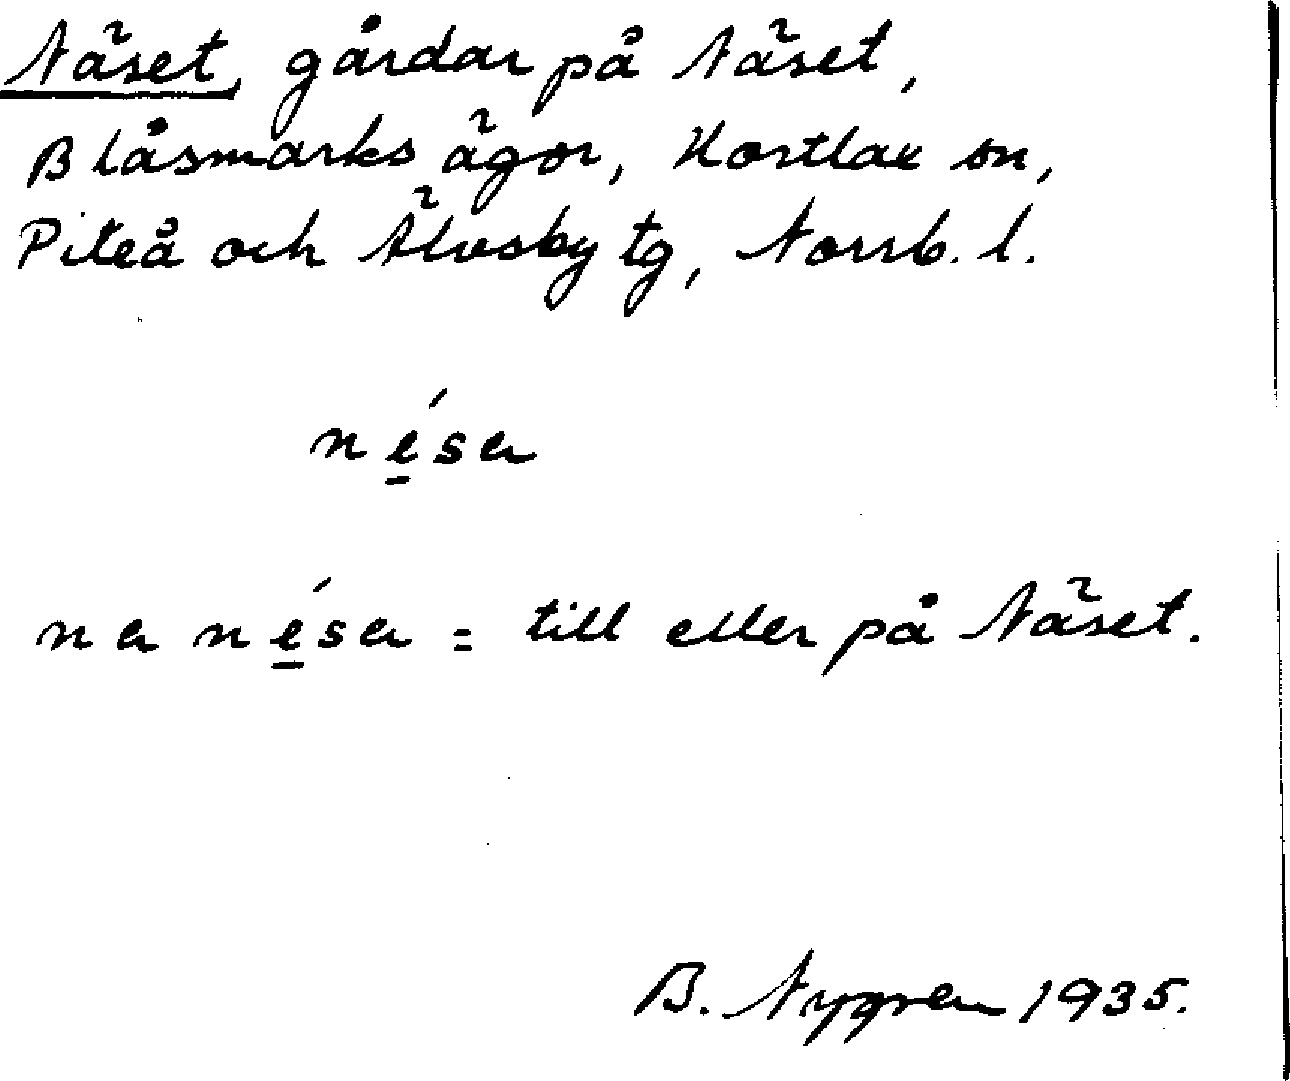 Näset, gårdar på Näset,
Blåsmarks ägor, Hortlax sn,
Piteå och Älvsby tg, Norrb. l.
né̱sa
na né̱sa = till eller på Näset.
B. Nygren 1935.